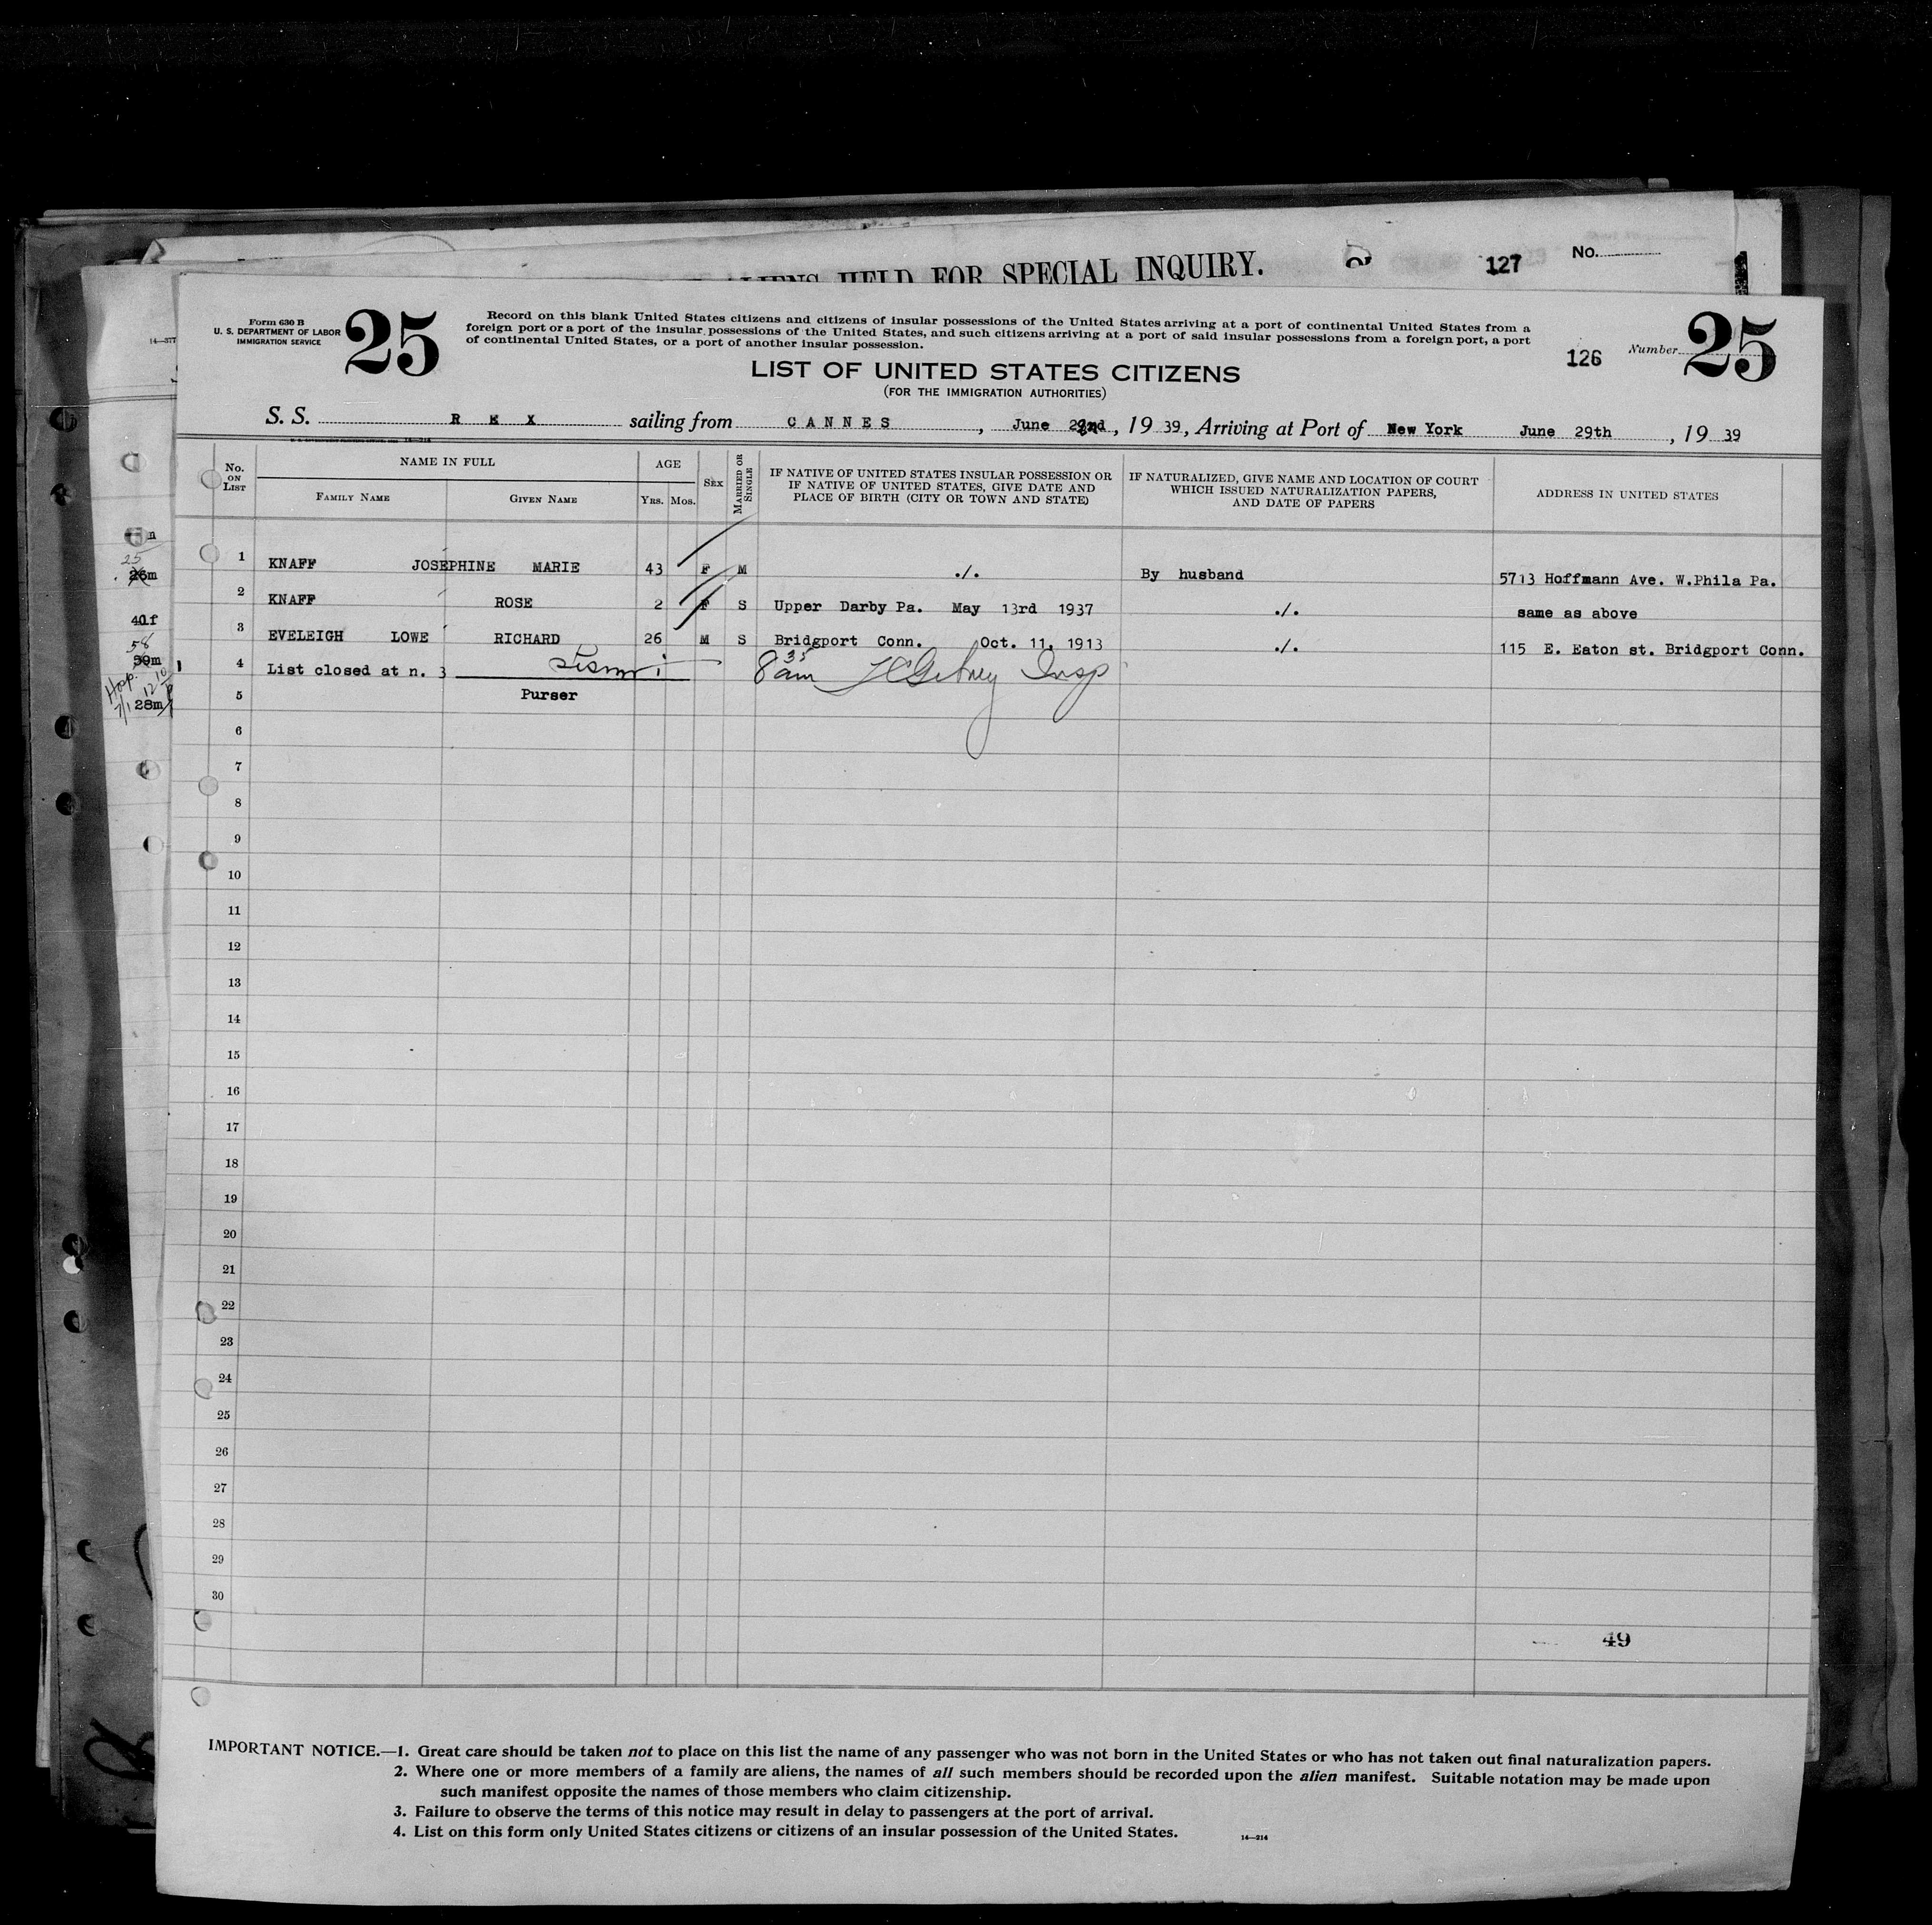 HELD FOR SPECIAL INQUIRY.
127
No.
Form 630 B
U. S. DEPARTMENT OF LABOR
IMMIGRATION SERVICE
25
Record on this blank United States citizens and citizens of insular possessions of the United States arriving at a port of continental United States from a
foreign port or a port of the insular possessions of the United States, and such citizens arriving at a port of said insular possessions from a foreign port, a port
of continental United States, or a port of another insular possession.
126
Number 25
LIST OF UNITED STATES CITIZENS
(FOR THE IMMIGRATION AUTHORITIES)
S. S. R E X sailing from CANNES, June 22nd, 1939, Arriving at Port of New York June 29th, 1939
No. ON LIST
NAME IN FULL
FAMILY NAME
GIVEN NAME
AGE
YRS. MOS.
SEX
MARRIED OR SINGLE
IF NATIVE OF UNITED STATES INSULAR POSSESSION OR
IF NATIVE OF UNITED STATES, GIVE DATE AND
PLACE OF BIRTH (CITY OR TOWN AND STATE)
IF NATURALIZED, GIVE NAME AND LOCATION OF COURT
WHICH ISSUED NATURALIZATION PAPERS,
AND DATE OF PAPERS
ADDRESS IN UNITED STATES
1 KNAFF JOSEPHINE MARIE 43 F M ./. By husband 5713 Hoffmann Ave. W.Phila Pa.
2 KNAFF ROSE 2 F S Upper Darby Pa. May 13rd 1937 ./. same as above
3 EVELEIGH LOWE RICHARD 26 M S Bridgport Conn. Oct. 11, 1913 ./. 115 E. Eaton st. Bridgport Conn.
4 List closed at n. 3 8 35 am Insp
5 Purser
6
7
8
9
10
11
12
13
14
15
16
17
18
19
20
21
22
23
24
25
26
27
28
29
30
49
IMPORTANT NOTICE.—1. Great care should be taken not to place on this list the name of any passenger who was not born in the United States or who has not taken out final naturalization papers.
2. Where one or more members of a family are aliens, the names of all such members should be recorded upon the alien manifest. Suitable notation may be made upon
such manifest opposite the names of those members who claim citizenship.
3. Failure to observe the terms of this notice may result in delay to passengers at the port of arrival.
4. List on this form only United States citizens or citizens of an insular possession of the United States.
14—214